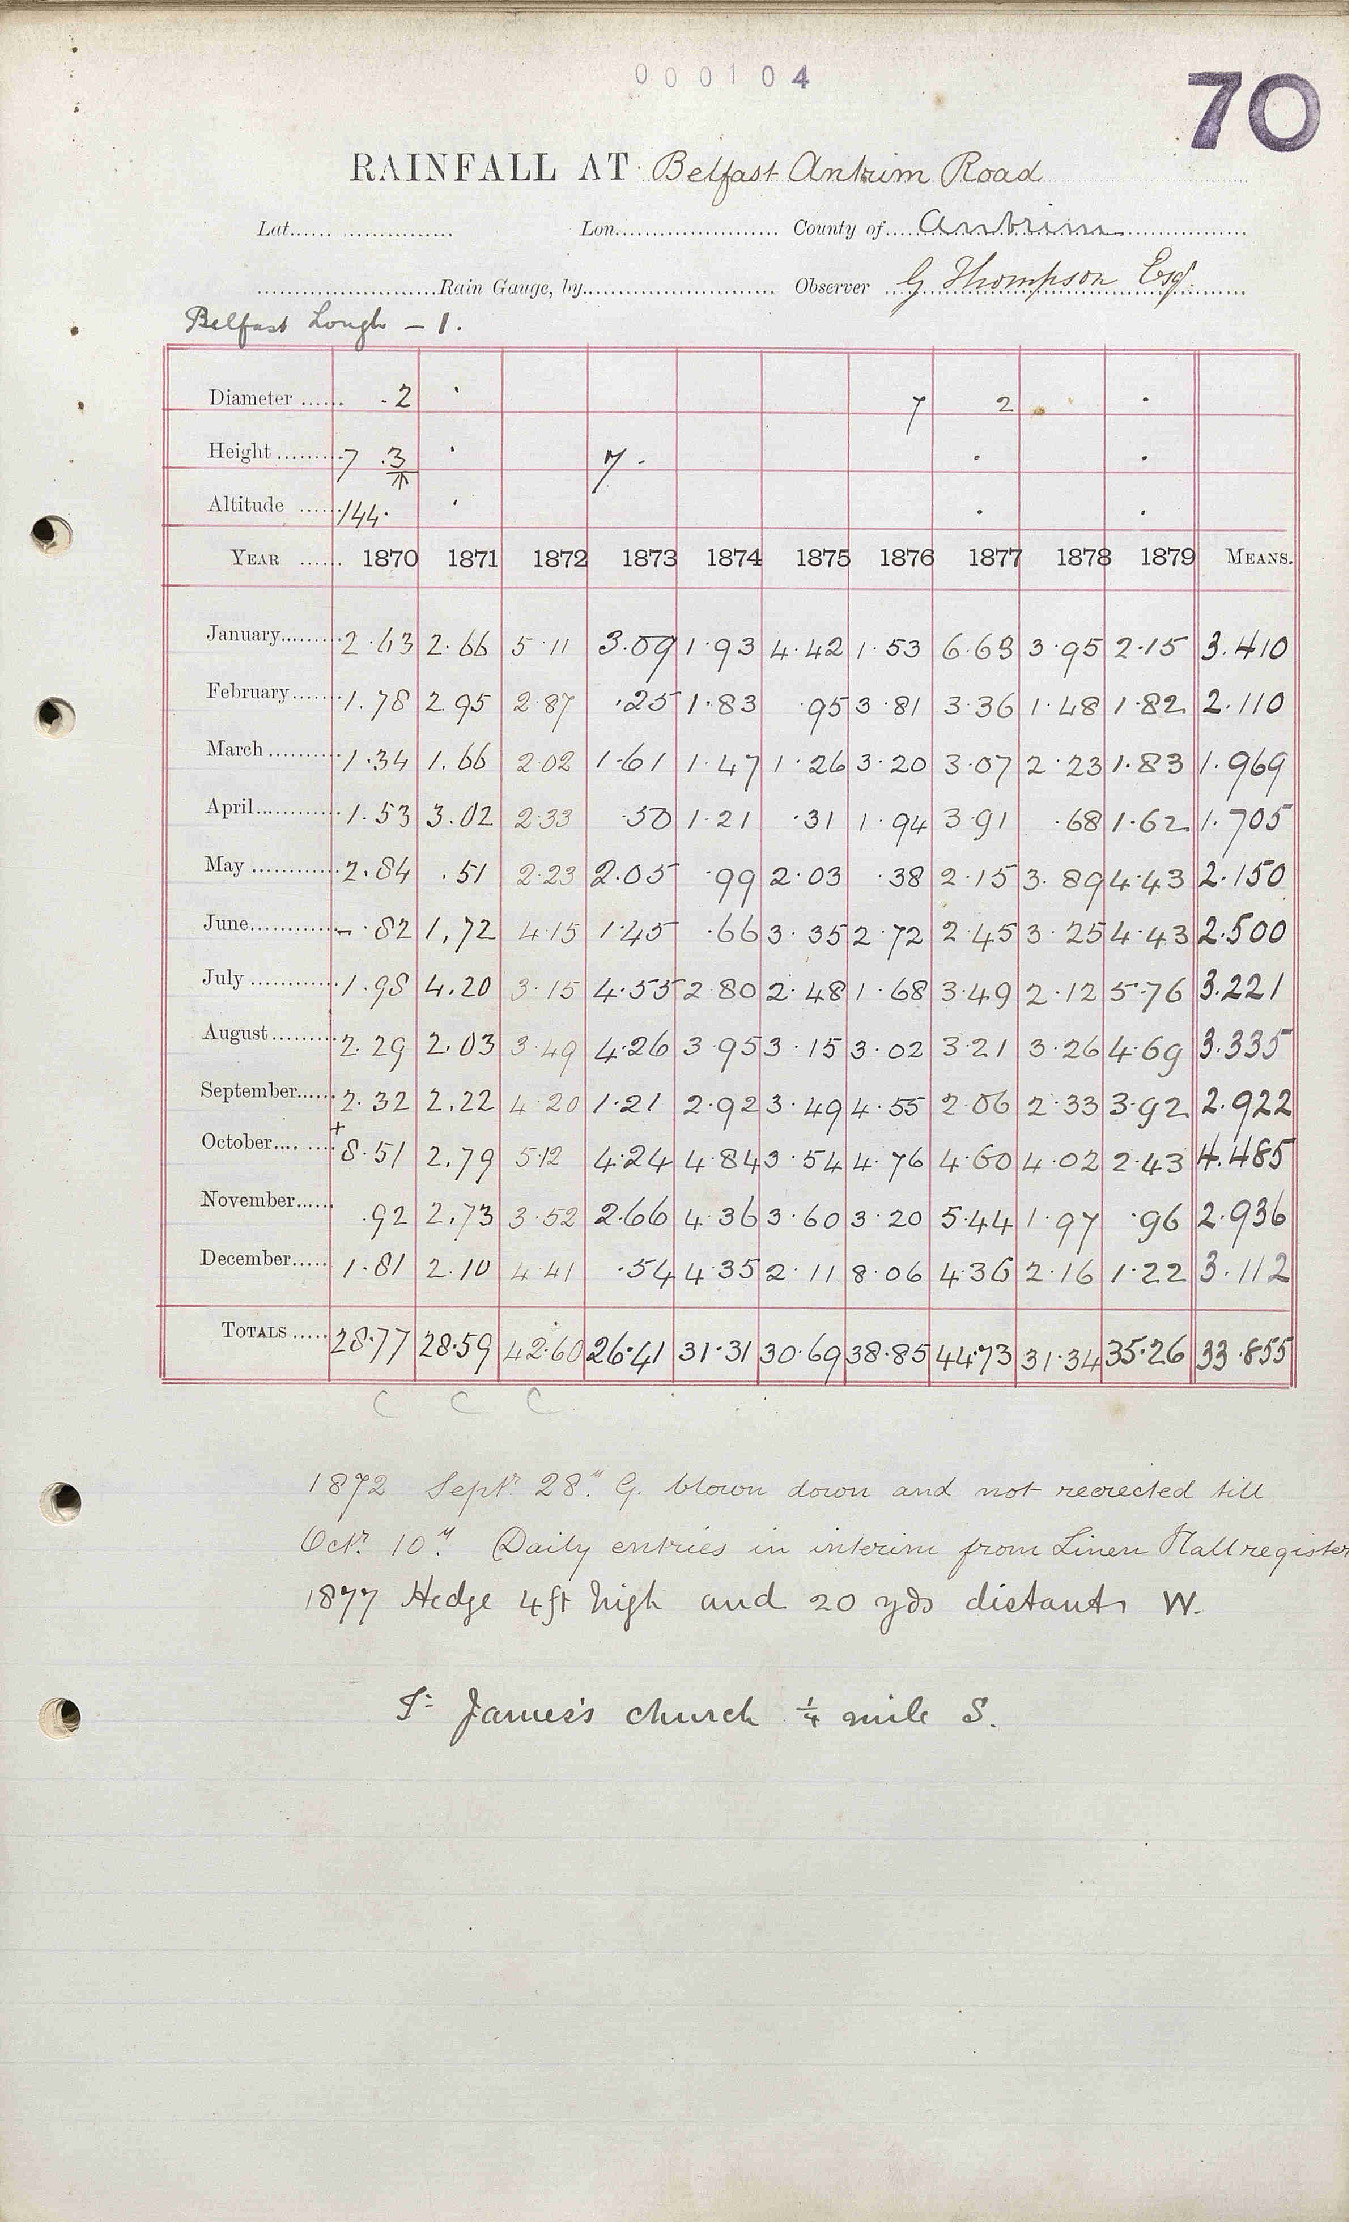 000104
70
RAINFALL AT Belfast Antrim Road
Lat. Lon. County of Antrim
Rain Gauge, by Observer G Thompson Esq
Belfast Lough - 1.
Diameter 2 7 2
Height 7 .3 7
Altitude 144
YEAR 1870 1871 1872 1873 1874 1875 1876 1877 1878 1879 MEANS.
January 2.63 2.66 5.11 3.09 1.93 4.42 1.53 6.63 3.95 2.15 3.410
February 1.78 2.95 2.87 .25 1.83 .95 3.81 3.36 1.48 1.82 2.110
March 1.34 1.66 2.02 1.61 1.47 1.26 3.20 3.07 2.23 1.83 1.969
April 1.53 3.02 2.33 .50 1.21 .31 1.94 3.91 .68 1.62 1.705
May 2.84 .51 2.23 2.05 .99 2.03 .38 2.15 3.89 4.43 2.150
June - .82 1.72 4.15 1.45 .66 3.35 2.72 2.45 3.25 4.43 2.500
July 1.98 4.20 3.15 4.55 2.80 2.48 1.68 3.49 2.12 5.76 3.221
August 2.29 2.03 3.49 4.26 3.95 3.15 3.02 3.21 3.26 4.69 3.335
September 2.32 2.22 4.20 1.21 2.92 3.49 4.55 2.06 2.33 3.92 2.922
October + 8.51 2.79 5.12 4.24 4.84 3.54 4.76 4.60 4.02 2.43 4.485
November .92 2.73 3.52 2.66 4.36 3.60 3.20 5.44 1.97 .96 2.936
December 1.81 2.10 4.41 .54 4.35 2.11 8.06 4.36 2.16 1.22 3.112
TOTALS 28.77 28.59 42.60 26.41 31.31 30.69 38.85 44.73 31.34 35.26 33.855
C C C
1872 Septr 28th G. blown down and not reerected till
Octr 10th Daily entries in interim from Linen Hall register
1877 Hedge 4ft high and 20 yds distant W.
St James's church ¼ mile S.